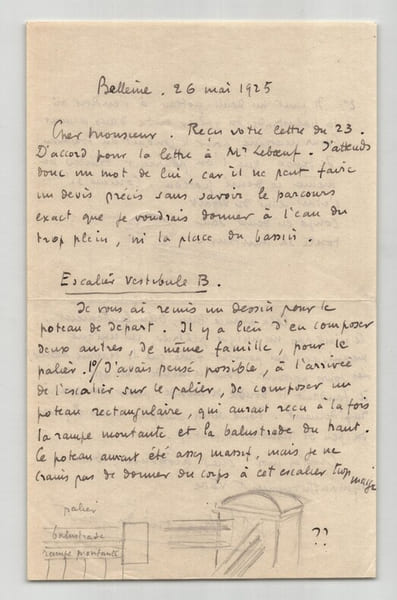 Belleine. 26 mai 1925
Cher Monsieur. Reçu votre lettre du 23.
D'accord pour la lettre à Mr Lebœuf. J'attends
donc un mot de lui, car il ne peut faire
un devis précis sans savoir le parcours
exact que je voudrais donner à l'eau du
trop plein, ni la place du bassin.
Escalier Vestibule B.
Je vous ai remis un dessin pour le
poteau de départ. Il y a lieu d'en composer
deux autres, de même famille, pour le
palier. 1º/ J'avais pensé possible, à l'arrivée
de l'escalier sur le palier, de composer un
poteau rectangulaire, qui aurait reçu à la fois
la rampe montante et la balustrade du haut.
Ce poteau aurait été assez massif, mais je ne
crains pas de donner du corps à cet escalier trop
maigre
palier
balustrade
rampe montante
??